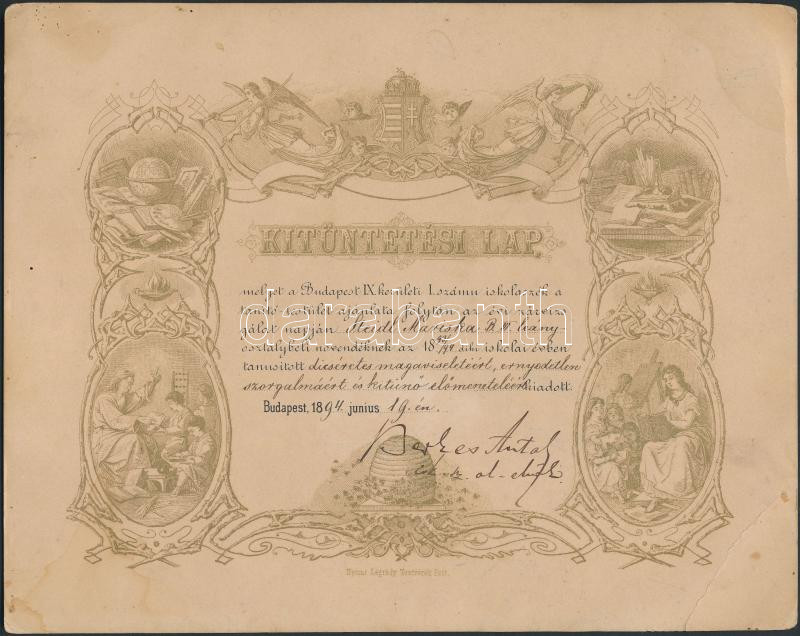 KITÜNTETÉSI LAP,
melyet a Budapest IX. kerületi I. számu iskolaszék a
tanító testület ajánlata folytán az évi záróvizs
gálat napján Steidl Mariska B. III. leány
osztálybeli növendéknek az 1893/94. diki iskolai évben
tanusitott dicséretes magaviseletéért, ernyedetlen
szorgalmáért és kitünő előmeneteleért kiadott.
Budapest, 1894. junius 19. én.
darabanth
Berkes Antal
Nyomt. Légrády Testvérek Pest.